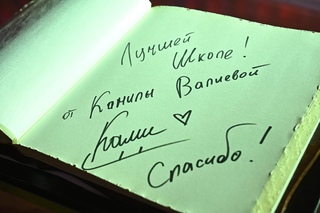 Лучшей
Школе!
от Камилы Валиевой
Ками ♡
Спасибо!